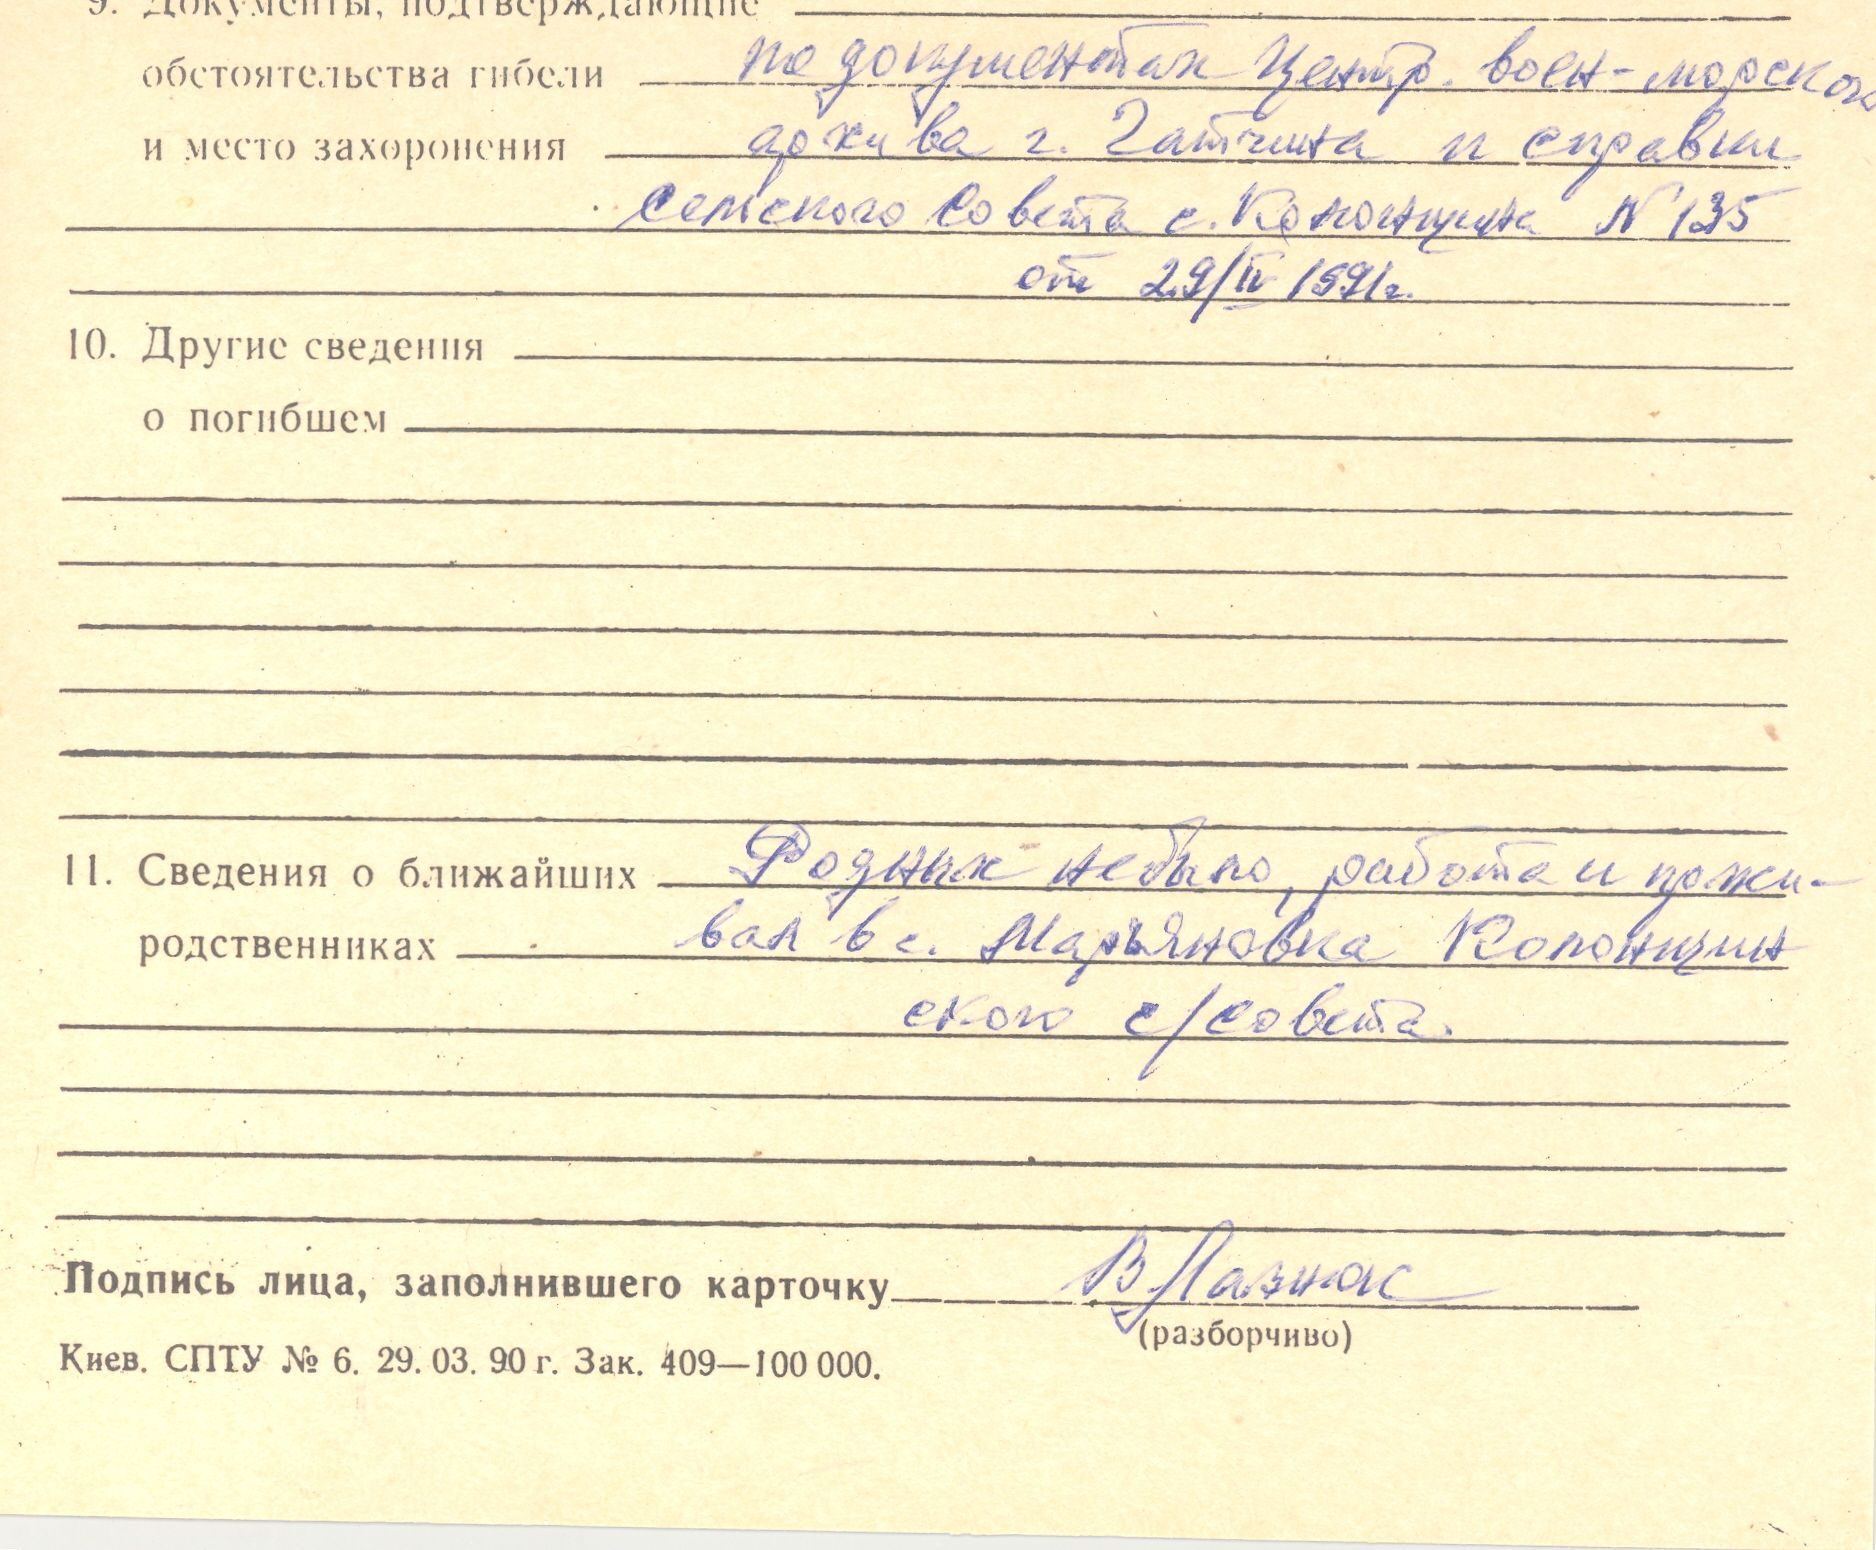 9. Документы, подтверждающие
обстоятельства гибели по документах Центр. воен-морского
и место захоронения архива г. Гатчина и справки
сельского Совета с. Колонщина N 135
от 29/IV 1991г.
10. Другие сведения
о погибшем
11. Сведения о ближайших Родных небыло, работал и прожи-
родственниках вал в с. Марьяновка Колонщин
ского с/совета.
Подпись лица, заполнившего карточку В Лазнюк
(разборчиво)
Киев. СПТУ № 6. 29. 03. 90 г. Зак. 409—100 000.